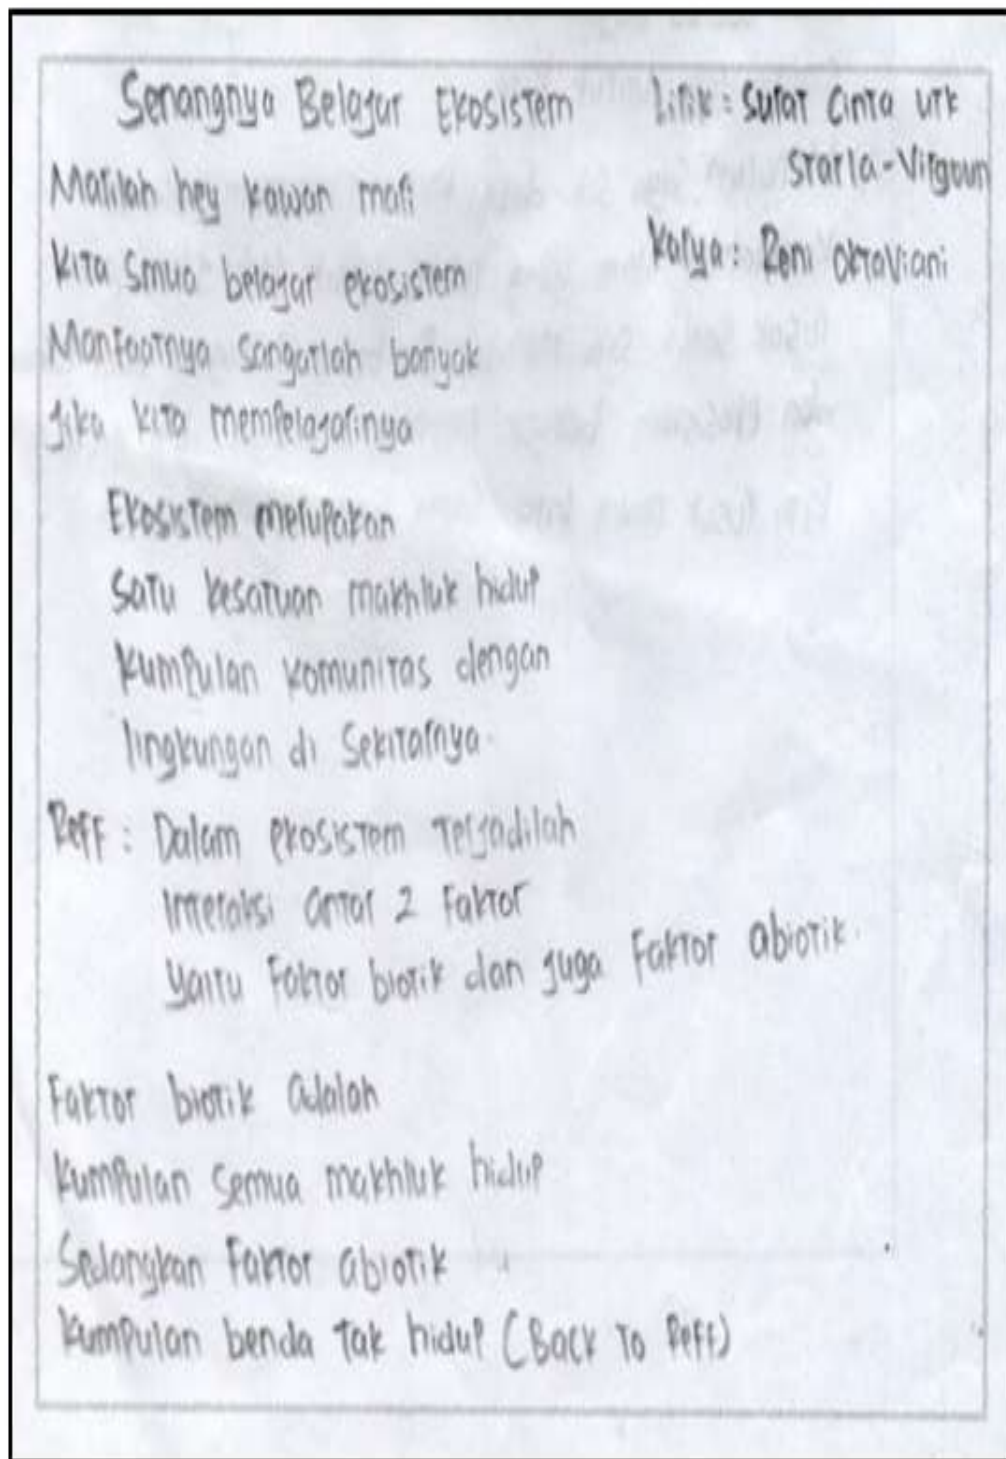 Senangnya Belajar Ekosistem
Lirik : Surat Cinta utk
Starla - Virgoun
Karya : Reni Oktaviani
Marilah hey kawan mari
Kita smua belajar ekosistem
Manfaatnya sangatlah banyak
Jika kita mempelajarinya
Ekosistem merupakan
Satu kesatuan makhluk hidup
Kumpulan komunitas dengan
lingkungan di sekitarnya.
Reff : Dalam ekosistem terjadilah
Interaksi antar 2 faktor
Yaitu faktor biotik dan juga faktor abiotik.
Faktor biotik adalah
Kumpulan semua makhluk hidup
Sedangkan faktor abiotik
Kumpulan benda tak hidup (Back to Reff)